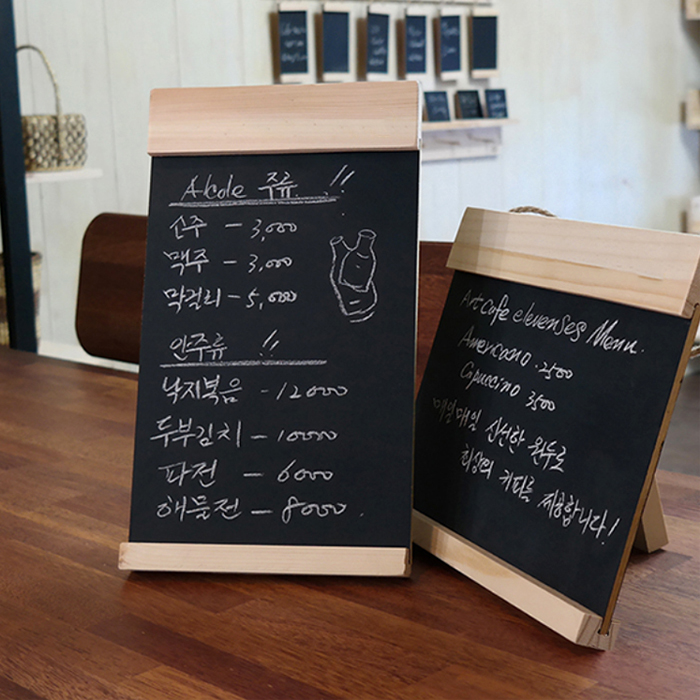 Alcole 주류 !!
소주 - 3,000
맥주 - 3,000
막걸리 - 5,000
안주류 !!
낙지볶음 - 12000
두부김치 - 10000
파전 - 6000
해물전 - 8000
Art Cafe elevenses Menu.
Amercano . 2500
Capuccino 3500
매일매일 신선한 원두로
최상의 커피를 제공합니다!